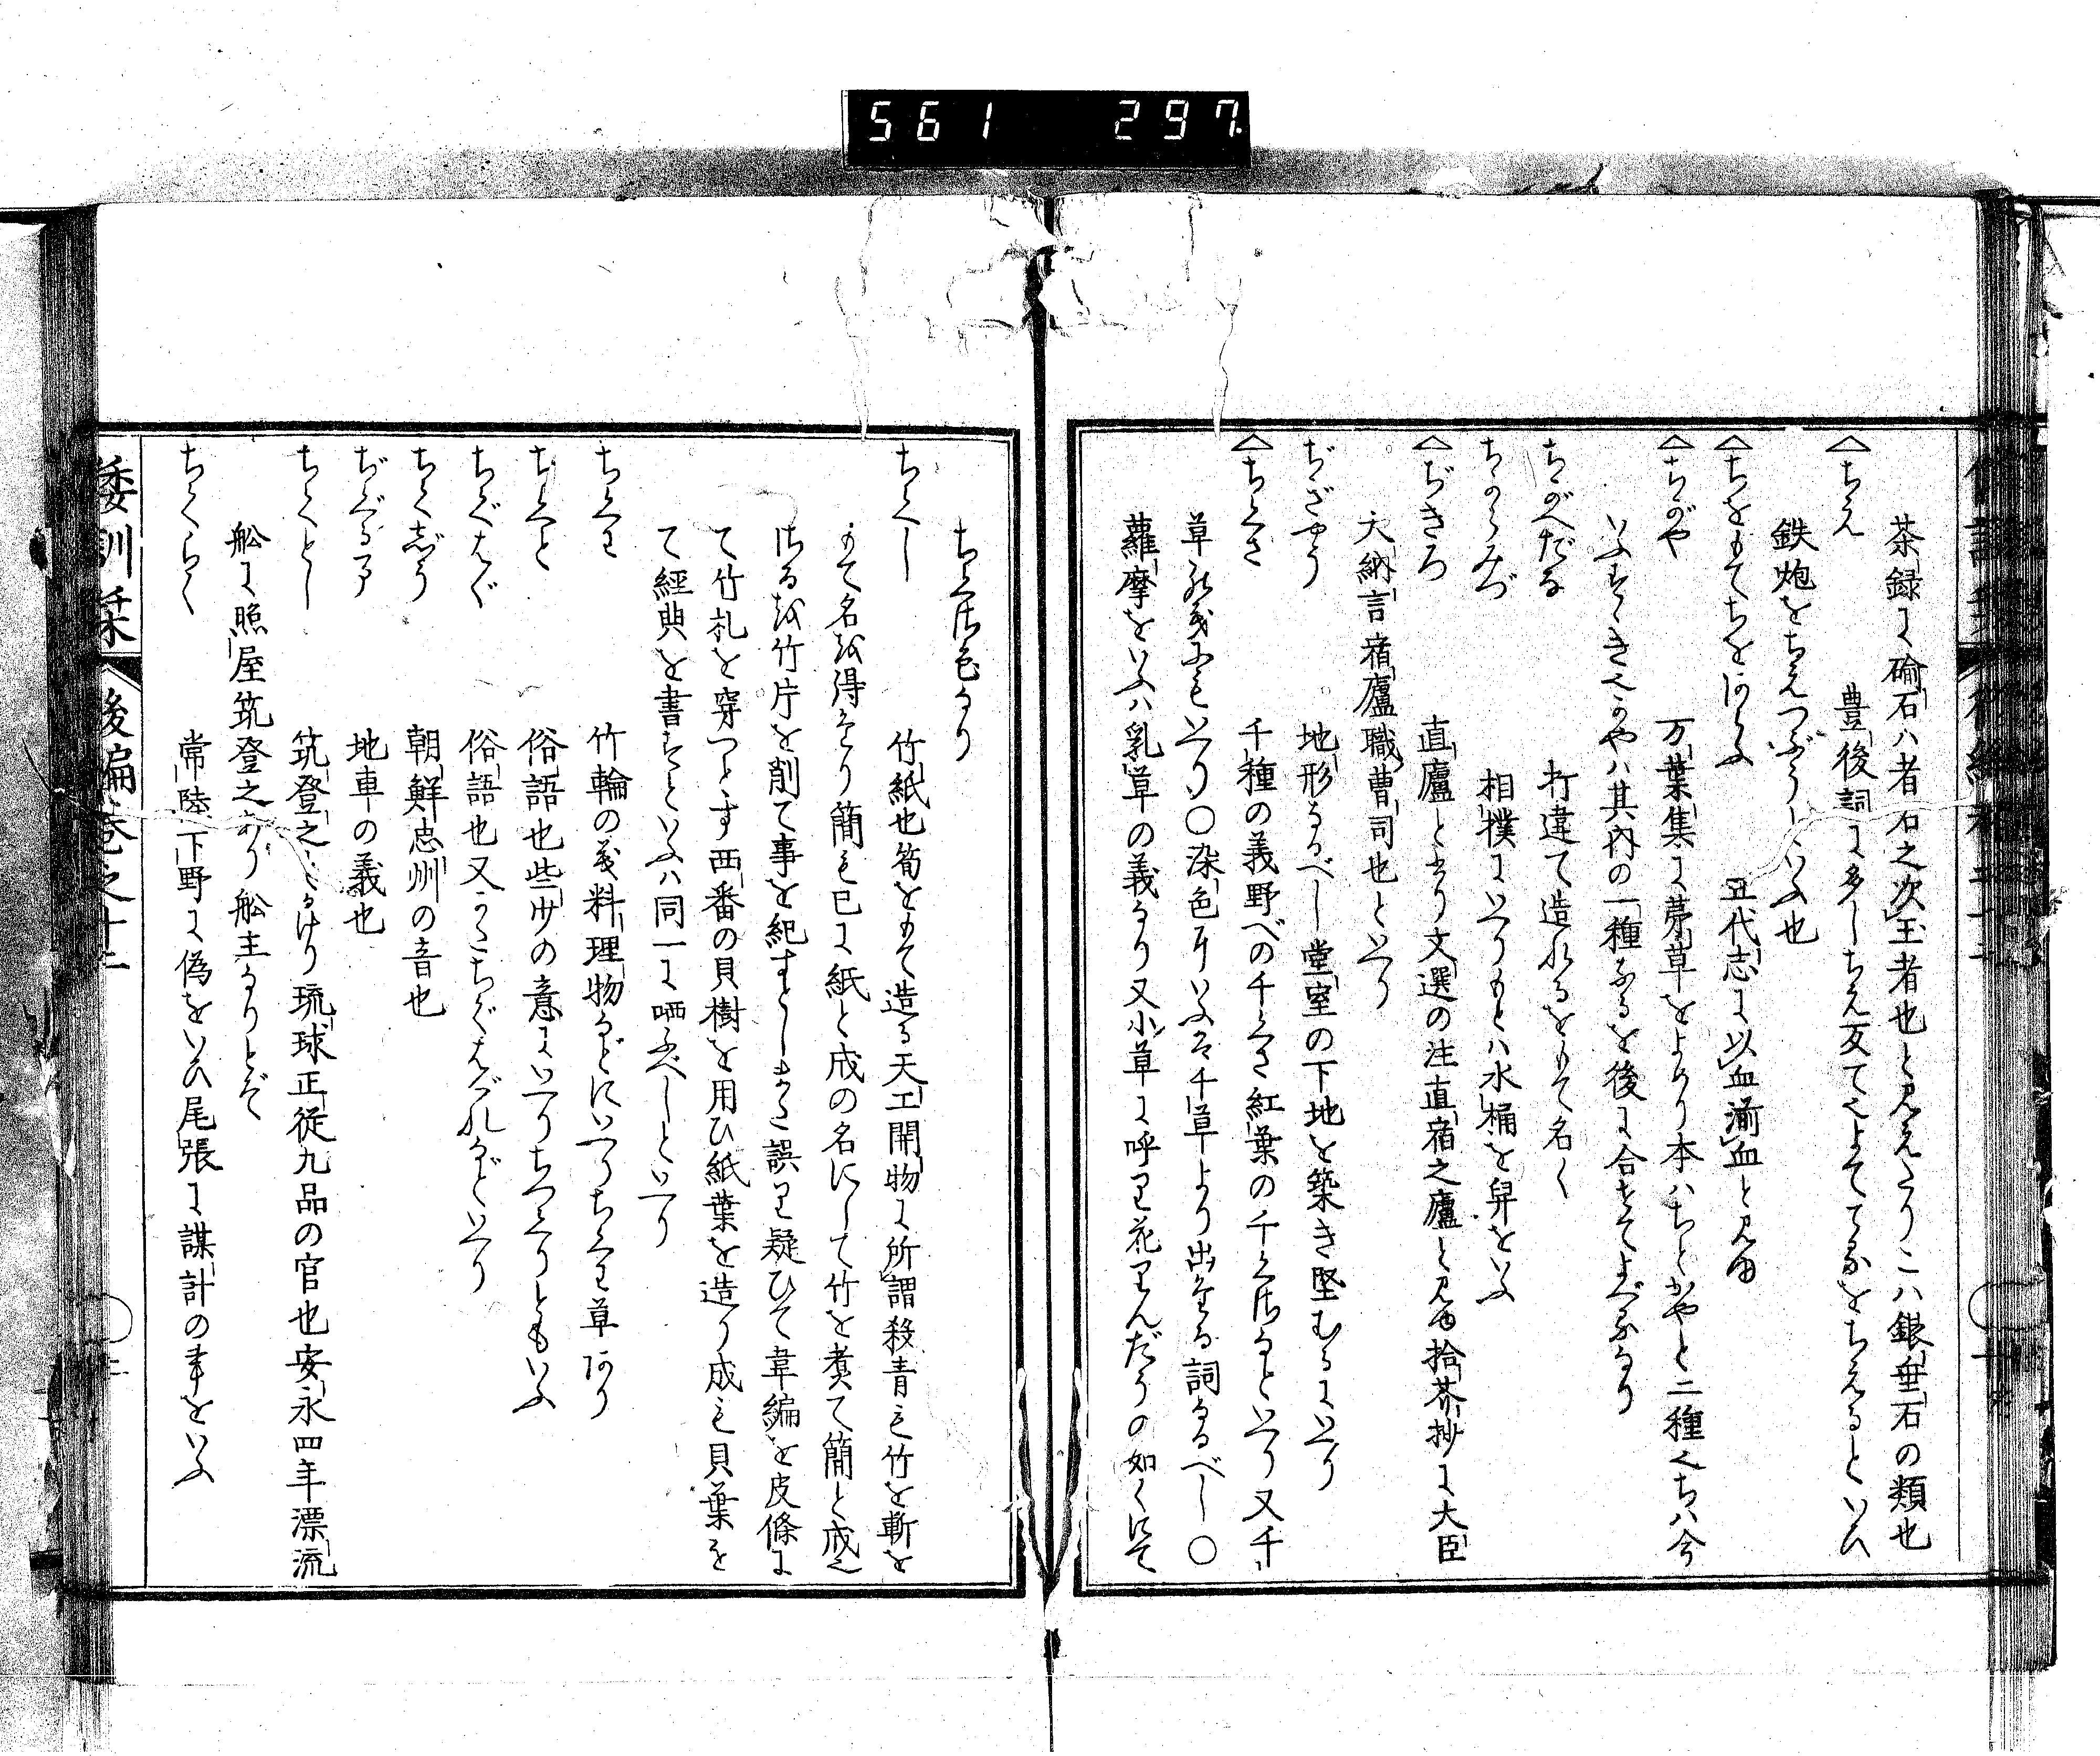 561 297
茶録に碖石ハ者石之次玉者也と見えたりこハ銀垂石の類也
ちえ 豊後詞に多しちえ友てよてなをちえるといひ
鉄炮をちえつぶうしいふ也
ちをもてちをあらふ 五代志に以血瀹血と見ゆ
ちがや 万葉集に茅草をよめり本ハちとかやと二種也ちハ今
いふすゝき也かやハ其内の一種なるを後に合せてよべるなり
ちがへだな 打違て造れるをもて名く
ちからみづ 相撲にいへりもとハ水桶を舁をいふ
ぢきろ 直廬とあり文選の注直宿之廬と見ゆ拾芥抄に大臣
大納言宿廬職曹司也といへり
ぢぎやう 地形なるべし堂室の下地を築き堅むるにいへり
ちくさ 千種の義野べの千くさ紅葉の千くさなといへり又千
草の義にもいへり〇染色にいふは千草より出たる詞なるべし〇
蘿摩をいふハ乳草の義なり又小草に呼り花りんだうの如くにて
ちくさ色なり
ちくし 竹紙也筍をもて造る天工開物に所謂殺青も竹を斬を
もて名を得たり簡も已に紙と成の名にして竹を煮て簡と成也
さるを竹片を削て事を紀すとしまた誤り疑ひて韋編を皮條に
て竹札を穿つとす西番の貝樹を用ひ紙葉を造り成も貝葉を
て經典を書すといふハ同一に哂ふべしといへり
ちくわ 竹輪の義料理物などにいへりちくわ草あり
ちくと 俗語也些少の意にいへりちつくりともいふ
ちぐはぐ 俗語也又かたちぐはづれなどいへり
ちくじう 朝鮮忠州の音也
ぢぐるま 地車の義也
ちくとし 筑登之とかけり琉球正從九品の官也安永四年漂流
舩に照屋筑登之あり舩主なりとぞ
ちくらく 常陸下野に偽をいひ尾張に謀計の事をいふ
倭訓栞 後編巻之十二